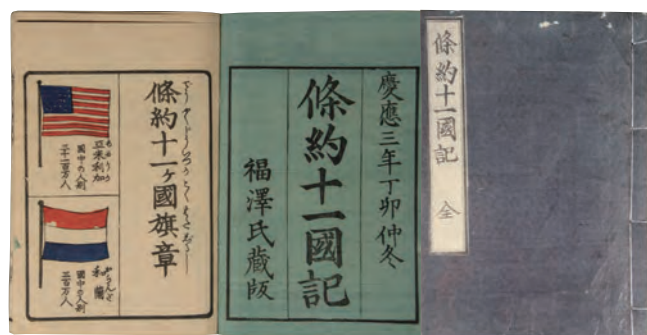 條約十一國記 全
慶應三年丁卯仲冬
條約十一國記
福澤氏藏版
條約十一ヶ國旗章
亞米利加
國中の人別
三千百万人
和蘭
國中の人別
三百万人